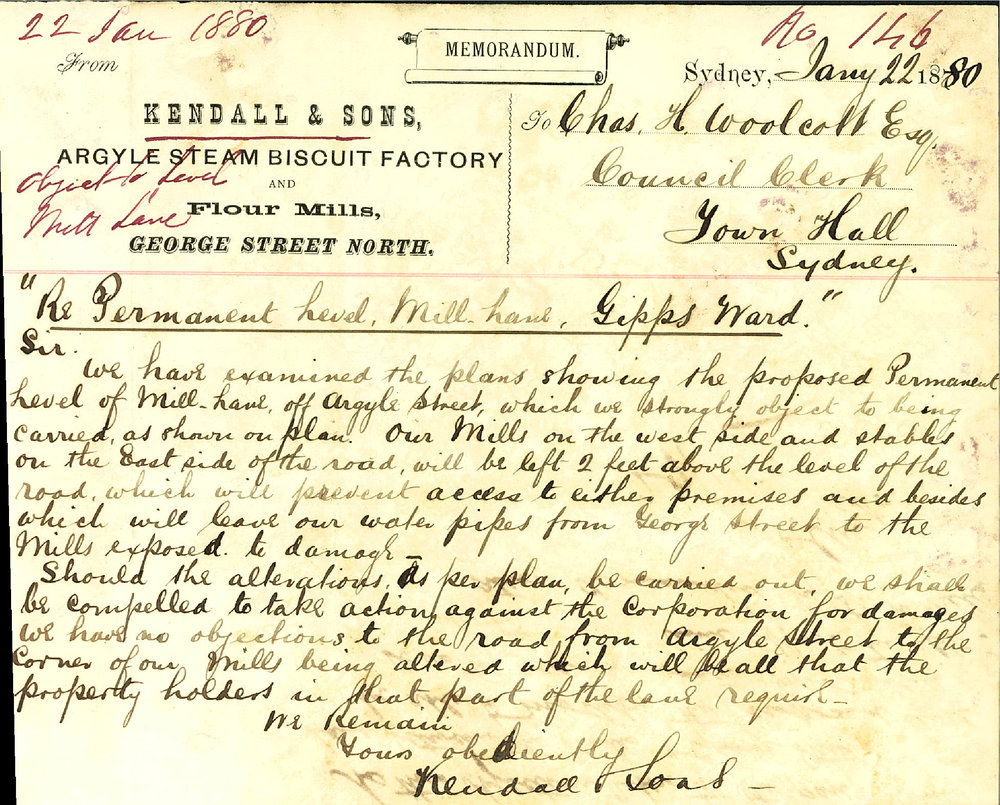 22 Jan 1880
No 146
From
MEMORANDUM.
Sydney, Jany 22 1880
KENDALL & SONS,
ARGYLE STEAM BISCUIT FACTORY
AND
Flour Mills,
GEORGE STREET NORTH.
Object to Level
Mill Lane
To Chas. H. Woolcott Esq.
Council Clerk
Town Hall
Sydney.
"Re Permanent Level, Mill-Lane, Gipps Ward."
Sir.
We have examined the plans showing the proposed Permanent
Level of Mill-Lane, off Argyle Street, which we strongly object to being
carried, as shown on plan. Our Mills on the west side and stables
on the East side of the road, will be left 2 feet above the level of the
road, which will prevent access to either premises and besides
which will leave our water pipes from George Street to the
Mills exposed to damage –
Should the alterations, as per plan, be carried out, we shall
be compelled to take action against the Corporation for damages
We have no objections to the road from Argyle Street to the
Corner of our Mills being altered which will be all that the
property holders in that part of the lane require –
We Remain
Yours obediently
Kendall & Sons –